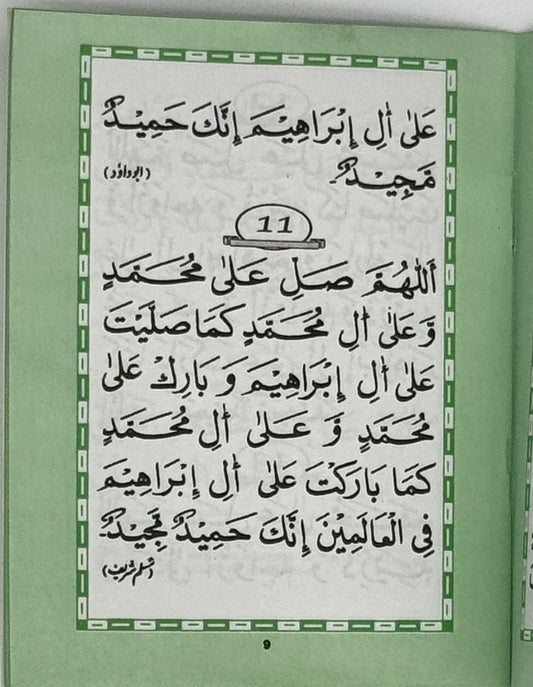 عَلٰى اٰلِ إِبْرَاهِيْمَ إِنَّكَ حَمِيْدٌ
مَّجِيْدٌ۔ (ابوداؤد)
11
اَللّٰهُمَّ صَلِّ عَلٰى مُحَمَّدٍ
وَّعَلٰى اٰلِ مُحَمَّدٍ كَمَا صَلَّيْتَ
عَلٰى اٰلِ إِبْرَاهِيْمَ وَ بَارِكْ عَلٰى
مُحَمَّدٍ وَّ عَلٰى اٰلِ مُحَمَّدٍ
كَمَا بَارَكْتَ عَلٰى اٰلِ إِبْرَاهِيْمَ
فِي الْعَالَمِيْنَ إِنَّكَ حَمِيْدٌ مَّجِيْدٌ۔
(مسلم شریف)
9